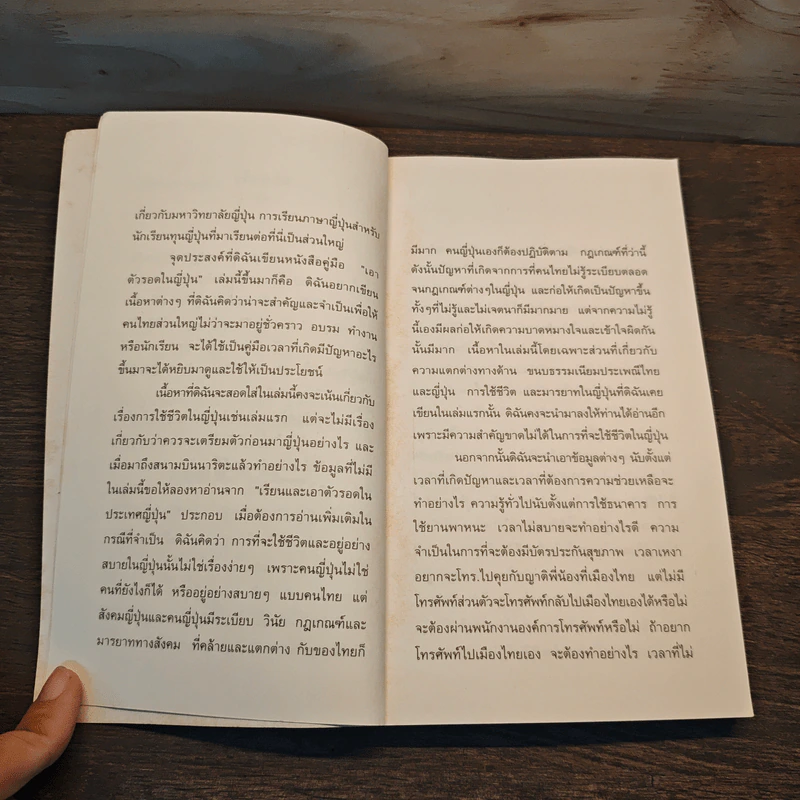 เกี่ยวกับมหาวิทยาลัยญี่ปุ่น การเรียนภาษาญี่ปุ่นสำหรับ
นักเรียนทุนญี่ปุ่นที่มาเรียนต่อที่นี่เป็นส่วนใหญ่
จุดประสงค์ที่ดิฉันเขียนหนังสือคู่มือ "เอา
ตัวรอดในญี่ปุ่น" เล่มนี้ขึ้นมาก็คือ ดิฉันอยากเขียน
เนื้อหาต่างๆ ที่ดิฉันคิดว่าน่าจะสำคัญและจำเป็นเพื่อให้
คนไทยส่วนใหญ่ไม่ว่าจะมาอยู่ชั่วคราว อบรม ทำงาน
หรือนักเรียน จะได้ใช้เป็นคู่มือเวลาที่เกิดมีปัญหาอะไร
ขึ้นมาจะได้หยิบมาดูและใช้ให้เป็นประโยชน์
เนื้อหาที่ดิฉันจะสอดใส่ในเล่มนี้คงจะเน้นเกี่ยวกับ
เรื่องการใช้ชีวิตในญี่ปุ่นเช่นเล่มแรก แต่จะไม่มีเรื่อง
เกี่ยวกับว่าควรจะเตรียมตัวก่อนมาญี่ปุ่นอย่างไร และ
เมื่อมาถึงสนามบินนาริตะแล้วทำอย่างไร ข้อมูลที่ไม่มี
ในเล่มนี้ขอให้ลองหาอ่านจาก "เรียนและเอาตัวรอดใน
ประเทศญี่ปุ่น" ประกอบ เมื่อต้องการอ่านเพิ่มเติมใน
กรณีที่จำเป็น ดิฉันคิดว่า การที่จะใช้ชีวิตและอยู่อย่าง
สบายในญี่ปุ่นนั้นไม่ใช่เรื่องง่ายๆ เพราะคนญี่ปุ่นไม่ใช่
คนที่ยังไงก็ได้ หรืออยู่อย่างสบายๆ แบบคนไทย แต่
สังคมญี่ปุ่นและคนญี่ปุ่นมีระเบียบ วินัย กฎเกณฑ์และ
มารยาททางสังคม ที่คล้ายและแตกต่าง กับของไทยก็
มีมาก คนญี่ปุ่นเองก็ต้องปฏิบัติตาม กฎเกณฑ์ที่ว่านี้
ดังนั้นปัญหาที่เกิดจากการที่คนไทยไม่รู้ระเบียบตลอด
จนกฎเกณฑ์ต่างๆในญี่ปุ่น และก่อให้เกิดเป็นปัญหาขึ้น
ทั้งๆที่ไม่รู้และไม่เจตนาก็มีมากมาย แต่จากความไม่รู้
นี้เองมีผลก่อให้เกิดความบาดหมางใจและเข้าใจผิดกัน
นั้นมีมาก เนื้อหาในเล่มนี้โดยเฉพาะส่วนที่เกี่ยวกับ
ความแตกต่างทางด้าน ขนบธรรมเนียมประเพณีไทย
และญี่ปุ่น การใช้ชีวิต และมารยาทในญี่ปุ่นที่ดิฉันเคย
เขียนในเล่มแรกนั้น ดิฉันคงจะนำมาลงให้ท่านได้อ่านอีก
เพราะมีความสำคัญขาดไม่ได้ในการที่จะใช้ชีวิตในญี่ปุ่น
นอกจากนั้นดิฉันจะนำเอาข้อมูลต่างๆ นับตั้งแต่
เวลาที่เกิดปัญหาและเวลาที่ต้องการความช่วยเหลือจะ
ทำอย่างไร ความรู้ทั่วไปนับตั้งแต่การใช้ธนาคาร การ
ใช้ยานพาหนะ เวลาไม่สบายจะทำอย่างไรดี ความ
จำเป็นในการที่จะต้องมีบัตรประกันสุขภาพ เวลาเหงา
อยากจะโทร.ไปคุยกับญาติพี่น้องที่เมืองไทย แต่ไม่มี
โทรศัพท์ส่วนตัวจะโทรศัพท์กลับไปเมืองไทยเองได้หรือไม่
จะต้องผ่านพนักงานองค์การโทรศัพท์หรือไม่ ถ้าอยาก
โทรศัพท์ไปเมืองไทยเอง จะต้องทำอย่างไร เวลาที่ไม่